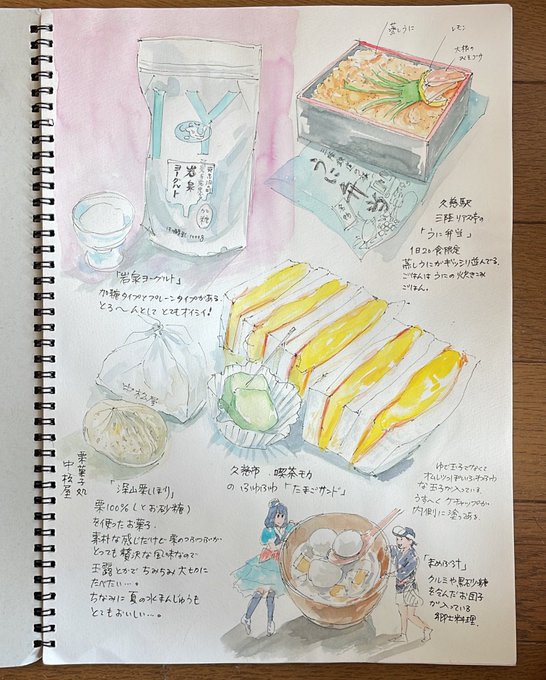 蒸しうに
レモン
大根の
みそづけ
岩泉
ヨーグルト
加糖
うに弁当
久慈駅
三陸リアス亭の
「うに弁当」
1日20食限定
蒸しうにがぎっしり並んでる。
ごはんはうにの炊きこみ
ごはん。
「岩泉ヨーグルト」
加糖タイプとプレーンタイプがある。
とろ〜んとして とてもオイシイ!
中松屋
栗菓子処
中松屋
「深山栗しぼり」
栗100%(とお砂糖)
を使ったお菓子。
素朴な感じだけど 栗のつぶつぶが
とっても贅沢な風味なので
玉露とかで ちみちみ 大切に
たべたい…。
ちなみに 夏の水まんじゅうも
とてもおいしい…。
久慈市 喫茶モカ
の ふわふわ「たまごサンド」
ゆで玉子でなくて
オムレツっぽいふわふわ
な玉子が入っている
うすーく ケチャップが
内側に塗ってある
「まめぶ汁」
クルミや黒砂糖
を含んだお団子
が入っている
郷土料理。